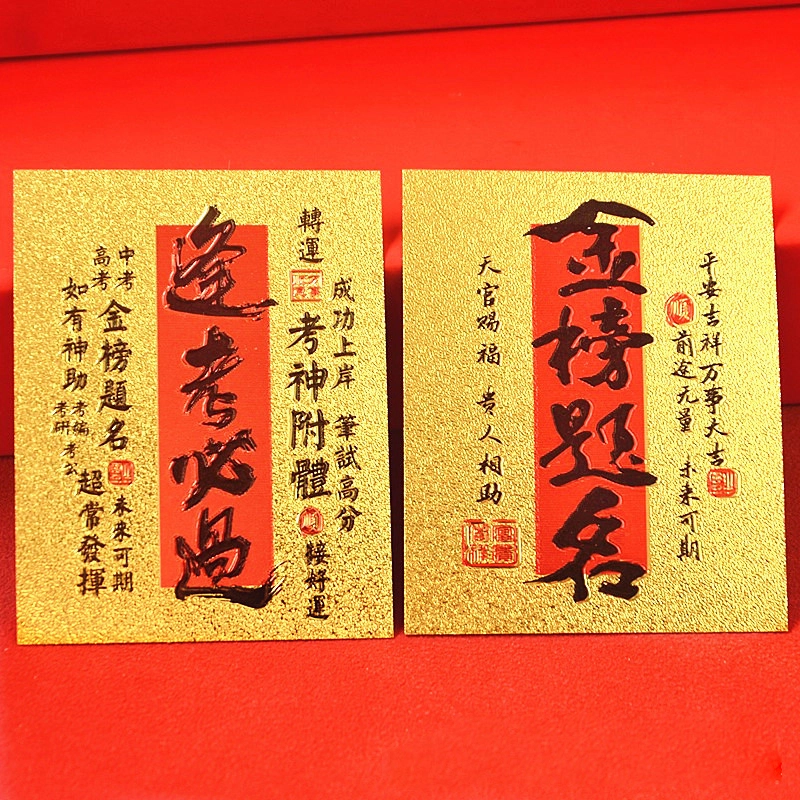 逢考必過
轉運
成功上岸 筆試高分
考神附體
順
接好運
中考
高考
金榜題名
如有神助
考編
考研
考公
未來可期
超常發揮
金榜题名
天官赐福 贵人相助
平安吉祥万事大吉
順
前途无量 未来可期